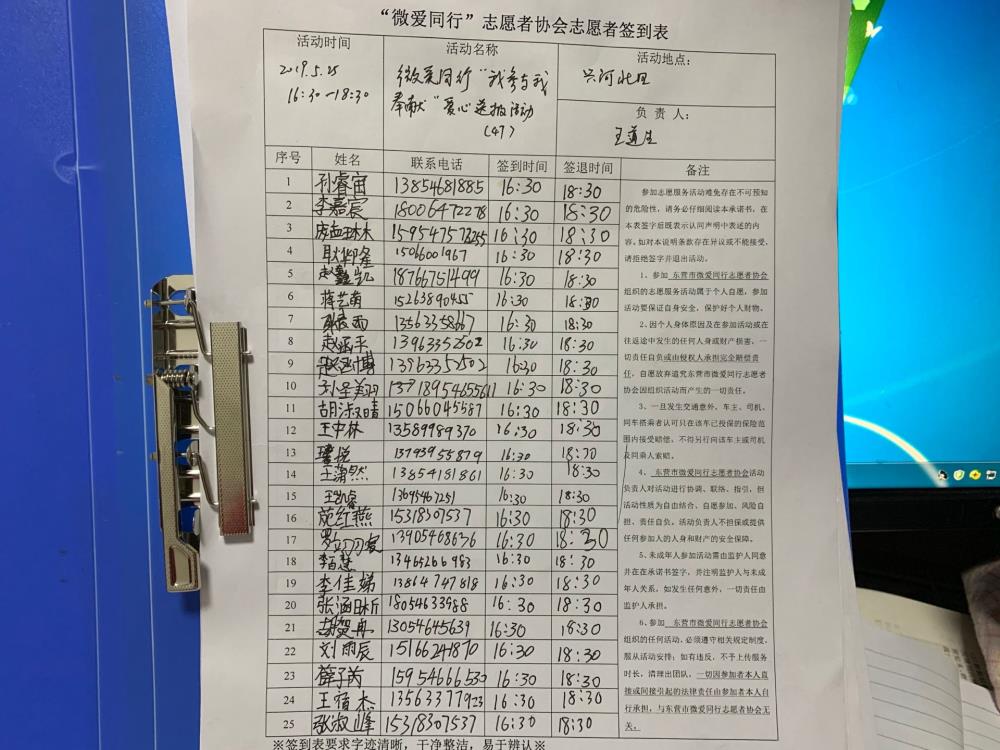 “微爱同行”志愿者协会志愿者签到表
活动时间 活动名称 活动地点：
2019.5.25 微爱同行“我参与我 兴河北里
16:30-18:30 奉献”爱心送报活动
(47)
负责人：
王道生
序号 姓名 联系电话 签到时间 签退时间 备注
1 孙睿宙 13854681885 16:30 18:30
2 李嘉宸 18006472278 16:30 18:30
3 16:30 18:30
4 15066001967 16:30 18:30
5 18766751499 16:30 18:30
6 蒋艺萌 15263890455 16:30 18:30
7 13563358667 16:30 18:30
8 赵涵平 13963352502 16:30 18:30
9 13963352502 16:30 18:30
10 16:30 18:30
11 胡淑晴 15066045587 16:30 18:30
12 王中林 13589989370 16:30 18:30
13 13793955879 16:30
14 王潇然 13854181861 16:30 18:30
15 王凯睿 13695467251 16:30 18:30
16 15318307537 16:30 18:30
17 13905468676 16:30 18:30
18 李百慧 13465266983 16:30 18:30
19 李佳娣 13864747818 16:30 18:30
20 张涵昕 18054633988 16:30 18:30
21 胡贺冉 13054645639 16:30 18:30
22 刘雨辰 15166241870 16:30 18:30
23 薛子芮 15954666530 16:30 18:30
24 王宿杰 13563377923 16:30 18:30
25 张淑峰 15318307537 16:30 18:30
参加志愿服务活动难免存在不可预知
的危险性，请务必仔细阅读本承诺书，在
本表签字后既表示认同声明中表述的内
容。如对本说明条款存在异议或不能接受，
请拒绝签字并退出活动。
1、参加 东营市微爱同行志愿者协会
组织的志愿服务活动属于个人自愿，参加
活动要保证自身安全，保护好个人财物。
2、因个人身体原因及在参加活动或在
往返途中发生的任何人身或财产损害，一
切责任自负或由侵权人承担完全赔偿责
任，自愿放弃追究东营市微爱同行志愿者
协会因组织活动而产生的一切责任。
3、一旦发生交通意外，车主、司机、
同车搭乘者认可只在该车已投保的保险范
围内接受赔偿，不得另行向该车主或司机
及同乘人索赔。
4、 东营市微爱同行志愿者协会活动
负责人对活动进行协调、联络、指引，但
活动性质为自由结合、自愿参加、风险自
担、责任自负。活动负责人不担保或提供
任何参加人的人身和财产的安全保障。
5、未成年人参加活动需由监护人同意
并在在承诺书签字，并注明监护人与未成
年人关系，如发生任何意外，一切责任由
监护人承担。
6、参加 东营市微爱同行志愿者协会
组织的任何活动，必须遵守相关规定制度，
服从活动安排；如有违反，不予上传服务
时长，清理出团队，一切因参加者本人直
接或间接引起的法律责任由参加者本人自
行承担，与东营市微爱同行志愿者协会无
关。
※签到表要求字迹清晰，干净整洁，易于辨认※